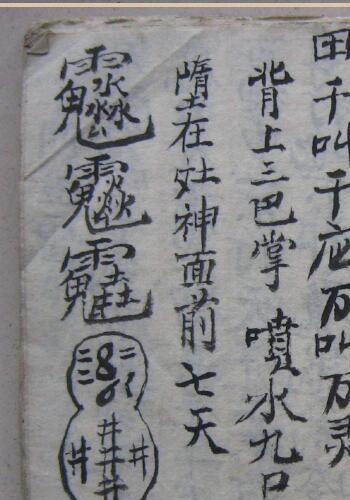 田千叫千应万叫万灵
背上三巴掌 噴水九口
墮在灶神面前七天